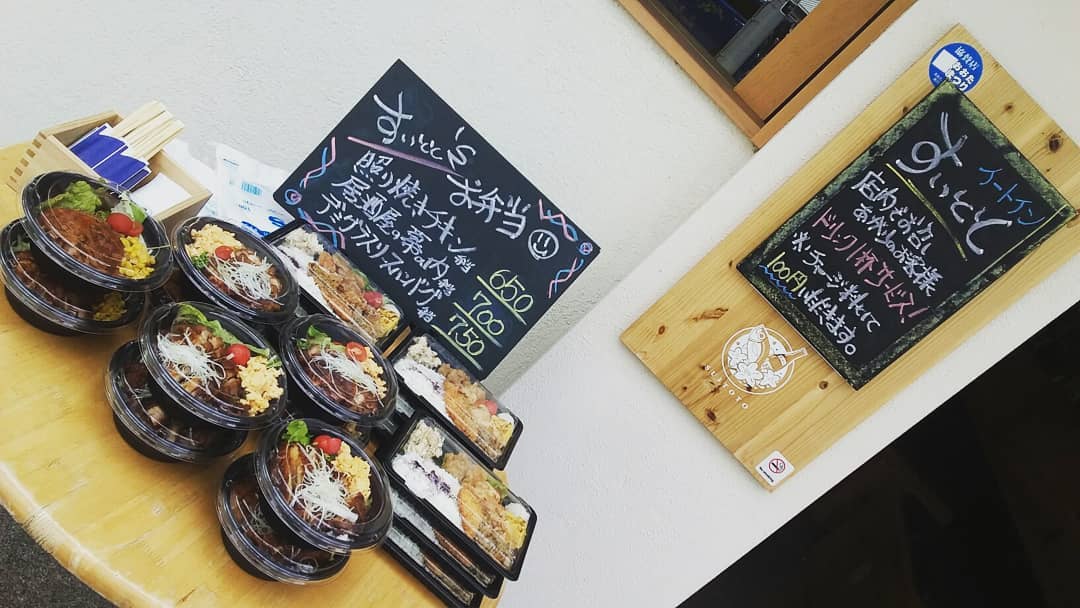 すいとと's
お弁当
照り焼きチキン弁当 650
居酒屋の幕の内弁当 700
デミグラスソースハンバーグ弁当 750
協賛店
おおた
まつり
イートイン
すいとと
店内でお召し
あがりのお客様
ドリンク1杯サービス!
※チャージ料として
100円いただきます。
SUITOTO